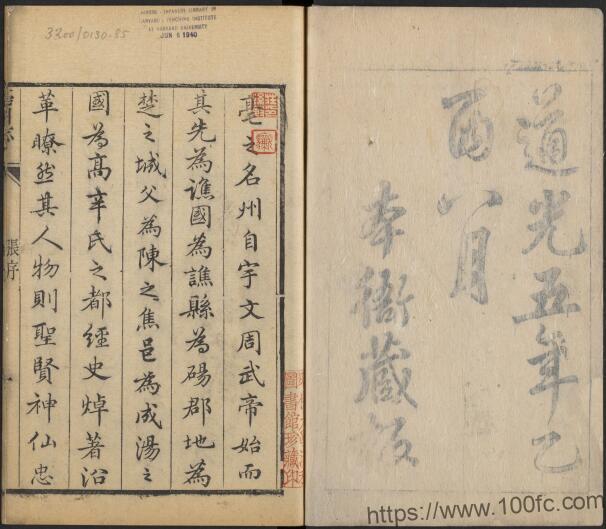 道光五年乙
酉八月
本衙藏板
亳之名州自宇文周武帝始而
其先為譙國為譙縣為碭郡地為
楚之城父為陳之焦邑為成湯之
國為高辛氏之都經史焯著沿
革瞭然其人物則聖賢神仙忠
張序
CHINESE-JAPANESE LIBRARY OF
HARVARD-YENCHING INSTITUTE
AT HARVARD UNIVERSITY
JUN 6 1940
3200/0130.85
圖書館珍藏印
https://www.100fc.com